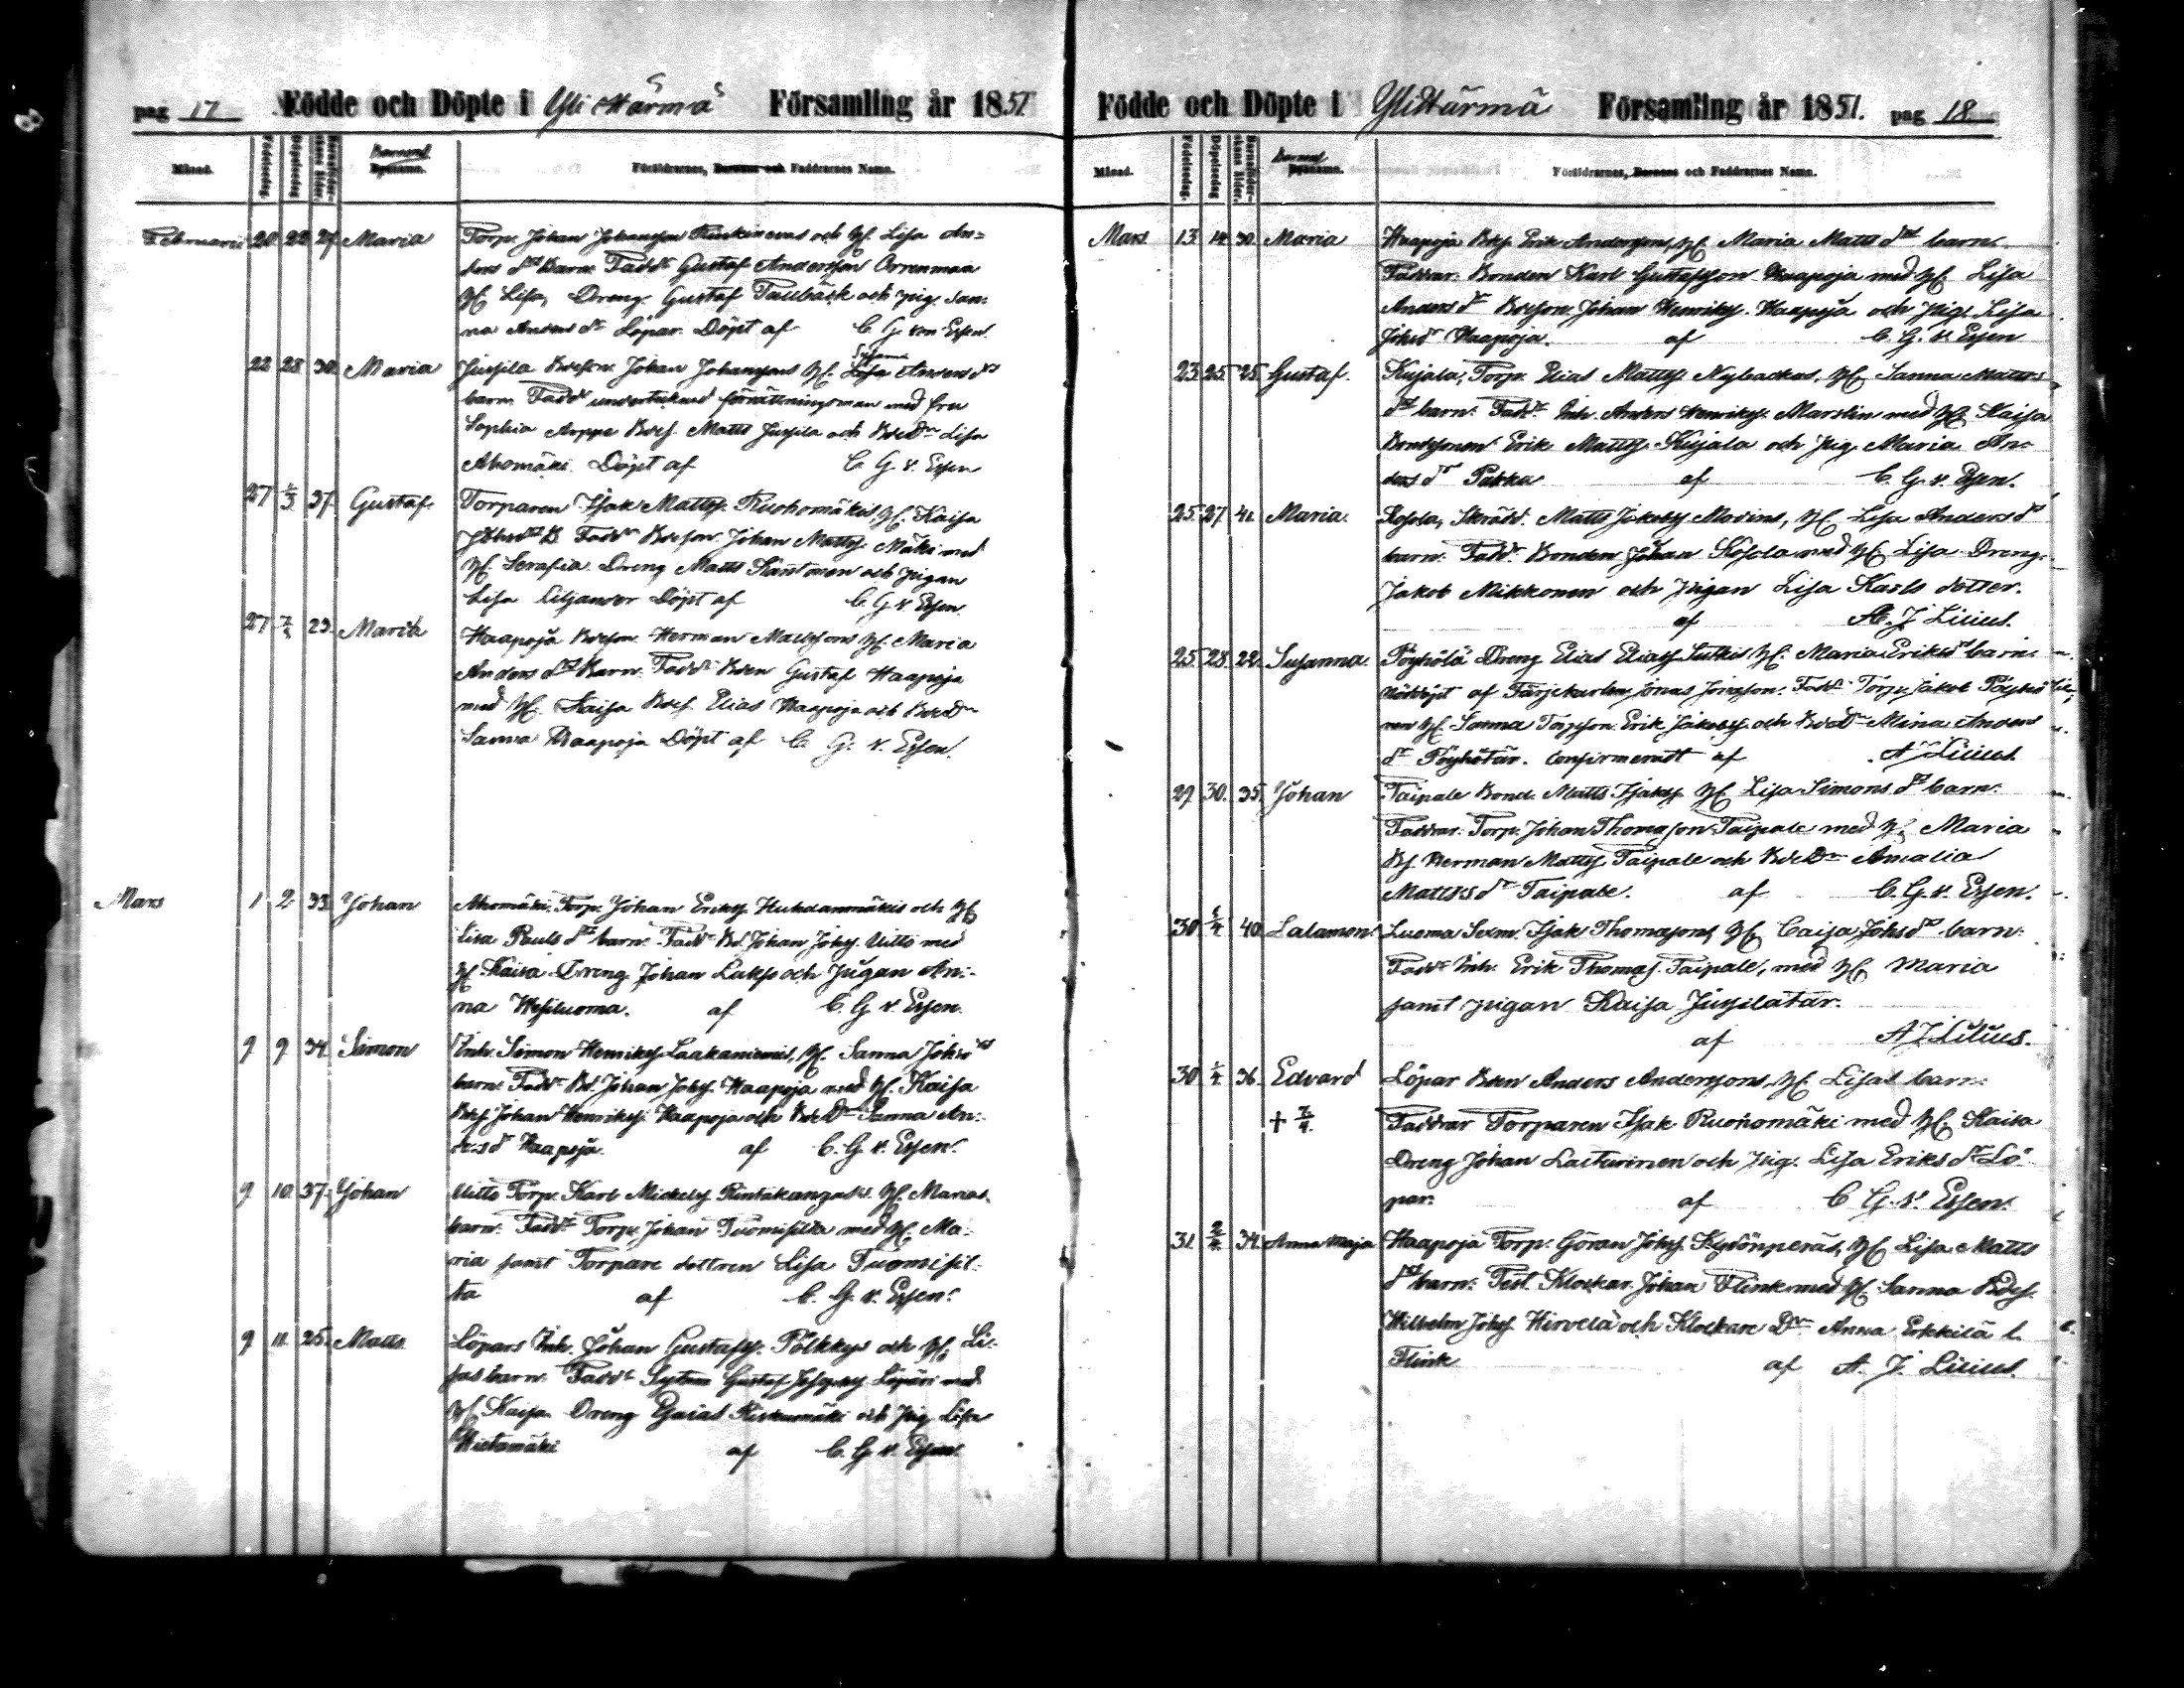 pag 17 Födde och Döpte i Yli Härmä Församling år 1851
Månad. Födelsedag Döpelsedag Barnaföderskans ålder. Barnens Dopnamn. Föräldrarnes, Barnens och Faddrarnes Namn.
Februarii 20 22 27 Maria Torp. Johan Johansson Rinkinevas och H. Lisa An=
ders dr Barn. Fadd. Gustaf Andersson Orrenmaa
H. Lisa, Dreng Gustaf Tallbäck och pig. San-
na Anders dr Löpar. Döpt af C. G. von Essen.
22 28 30 Maria Jussila Bdeson. Johan Johanssons H. Lisa Susanna Anders drs
barn. Fadd undertecknad förrättningsman med fru
Sophia Arppe Bdes. Matts Jussila och BdeDr Lisa
Ahomäki. Döpt af C. G. v. Essen
27 2/3 37 Gustaf. Torparen Isak Mattss. Ruohomäkis, H. Kaisa
Johsdr B. Fadd. Bdeson. Johan Mattss. Mäki med
H. Serafia. Dreng Matts Kantonen och pigan
Lisa Liljander Döpt af C. G. v. Essen
27 23. Maria Haapoja Bdeson. Herman Mattssons H. Maria
Anders dr Barn. Fadd. Bden Gustaf Haapoja
med H. Kaisa Bdes. Elias Haapoja och BdeDr
Sanna Haapoja Döpt af C. G. v. Essen.
Mars 1 2 33 Johan Ahomäki, Torp. Johan Erikss. Huhdanmäkis och H.
Lisa Pauls drs barn. Fadd. Bd. Johan Johss. Uitto med
H. Kaisa Dreng Johan Lakso och Pigan An-
na Wesiluoma. af C. G. v. Essen.
9 9 34 Simon Inh. Simon Henrikss. Laakaniemis, H. Sanna Johsdrs
barn. Fadd. Bd. Johan Johss. Haapoja med H. Kaisa
Bdes. Johan Henrikss. Haapoja och BdeDr Sanna An-
ders dr Haapoja. af C. G. v. Essen.
9 10 37 Johan Uitto Torp. Karl Mickelss. Rintakangas, H. Marias
barn. Fadd. Torp. Johan Tuomisilta med H. Ma-
ria samt Torpare dottren Lisa Tuomisil-
ta af C. G. v. Essen.
9 11 25 Matts Löpars Inh. Johan Gustafss. Pölkkys och H. Li-
sas barn. Fadd. Gustaf Josefss. Löpari med
H. Kaisa Dreng Esaias Kiskumäki och Pig. Lisa
Hietamäki af C. G. v. Essen.
Födde och Döpte i Yli Härmä Församling år 1851. pag 18
Månad. Födelsedag. Döpelsedag Barnaföderskans ålder. Barnens Dopnamn. Föräldrarnes, Barnens och Faddrarnes Namn.
Mars 13 14 30 Maria Haapoja Bdes. Erik Anderssons, H. Maria Matts drs barn.
Faddrar. Bonden Karl Gustafsson Haapoja med H. Lisa
Anders dr Bdeson Johan Henrikss. Haapoja och Pig. Lisa
Johsdr Haapoja. af C. G. v. Essen
23 25 25 Gustaf. Kujala, Torp. Elias Mattss. Nybackas, H. Sanna Matts
drs barn. Fadd. Inh. Anders Henrikss. Marstin med H. Kaisa
Bondsonen Erik Mattss. Kujala och Pig. Maria An-
ders dr Pukka af C. G. v. Essen.
25 27 41 Maria. Kosola, Skrädd. Matts Jakobss. Modins, H. Lisa Anders drs
barn. Fadd. Bonden Johan Kosola med H. Lisa Dreng.
Jakob Mikkonen och Pigan Lisa Karls dotter.
af A. J. Lilius.
25 28 22 Susanna. Pöyhölä Dreng Elias Eliass. H. Maria Eriksdrs barn.
Nöddöpt af Färjekarlen Jonas Jonsson. Fadd. Torp. Jakob Pöyhö
nen H. Sanna Torpson. Erik Jakobss. och BdeDr Mina Anders
dr Pöyhötär. Confirmeradt af A J Lilius.
29 30 35 Johan Taipale Bond. Matts Isakss. H. Lisa Simons drs barn.
Faddrar. Torp. Johan Thomasson Taipale med H. Maria
Bs. Herman Mattss. Taipale och BdeDr Amalia
Mattss dr Taipale. af C. G. v. Essen.
30 40 Salamon. Luoma Sexm. Isak Thomassons, H. Caisa Johsdrs barn.
Fadd. Inh. Erik Thomass. Taipale, med H. Maria
samt pigan Kaisa Jussilatär.
af A J Lilius.
30 1/4 36 Edvard Löpar Bden Anders Anderssons, H. Lisas barn.
† 7/4 Faddrar Torparen Isak Ruohomäki med H. Kaisa
Dreng Johan Laiturinen och Pig. Lisa Eriks dr Lö
par. af C G. v. Essen.
31 2/4 34 Anna Maja Haapoja Torp. Göran Johss. Kydönperäs, H. Lisa Matts
drs barn. Test. Klockar. Johan Flink med H. Sanna Bdes.
Wilhelm Johss. Hirvelä och Klockare Dr Anna Erkkilä l.
Flink af A. J. Lilius.